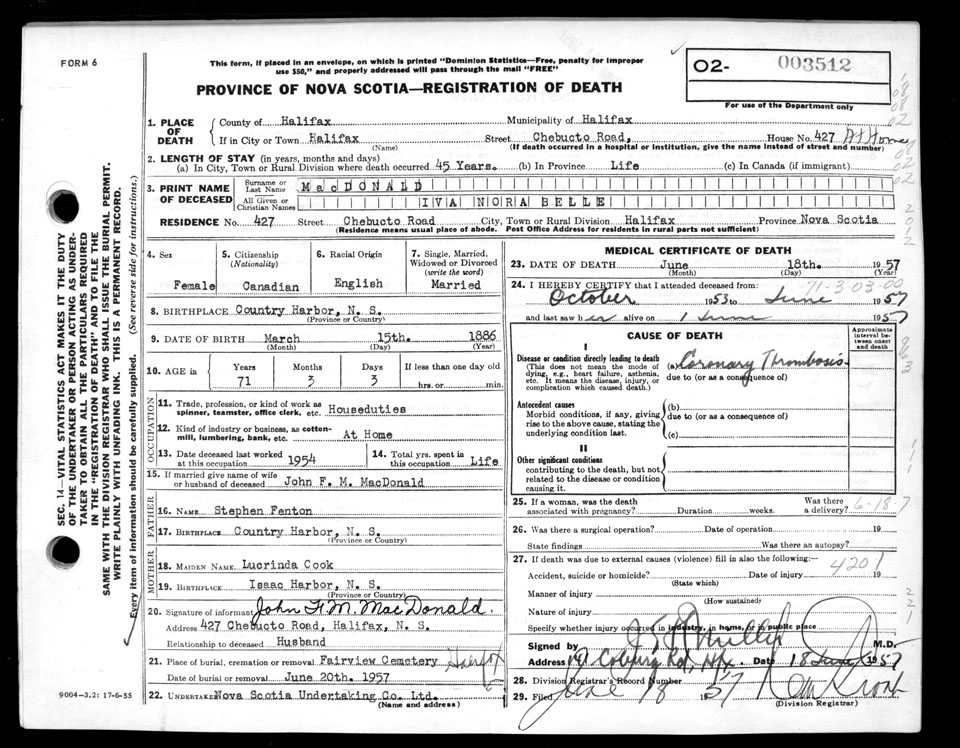 FORM 6
This form, if placed in an envelope, on which is printed "Dominion Statistics—Free, penalty for improper
use $50," and properly addressed will pass through the mail "FREE"
O2- 003512
For use of the Department only
PROVINCE OF NOVA SCOTIA—REGISTRATION OF DEATH
1. PLACE OF DEATH
County of Halifax Municipality of Halifax
If in City or Town Halifax Street Chebucto Road, House No. 427 At Home
(Name) (If death occurred in a hospital or institution, give the name instead of street and number)
2. LENGTH OF STAY (in years, months and days)
(a) In City, Town or Rural Division where death occurred 45 Years. (b) In Province Life (c) In Canada (if immigrant)
3. PRINT NAME OF DECEASED
Surname or Last Name MacDONALD
All Given or Christian Names IVA NORA BELLE
RESIDENCE No. 427 Street Chebucto Road City, Town or Rural Division Halifax Province Nova Scotia
(Residence means usual place of abode. Post Office Address for residents in rural parts not sufficient)
4. Sex
Female
5. Citizenship
(Nationality)
Canadian
6. Racial Origin
English
7. Single, Married,
Widowed or Divorced
(write the word)
Married
8. BIRTHPLACE Country Harbor, N. S.
(Province or Country)
9. DATE OF BIRTH March 15th. 1886
(Month) (Day) (Year)
10. AGE in
Years Months Days If less than one day old
71 3 3 hrs. or min.
OCCUPATION
11. Trade, profession, or kind of work as
spinner, teamster, office clerk, etc. Houseduties
12. Kind of industry or business, as cotton-
mill, lumbering, bank, etc. At Home
13. Date deceased last worked
at this occupation 1954
14. Total yrs. spent in
this occupation Life
15. If married give name of wife
or husband of deceased John F. M. MacDonald
FATHER
16. NAME Stephen Fenton
17. BIRTHPLACE Country Harbor, N. S.
(Province or Country)
MOTHER
18. MAIDEN NAME Lucrinda Cook
19. BIRTHPLACE Isaac Harbor, N. S.
(Province or Country)
20. Signature of informant John F. M. MacDonald.
Address 427 Chebucto Road, Halifax, N. S.
Relationship to deceased Husband
21. Place of burial, cremation or removal Fairview Cemetery Halifax
Date of burial or removal June 20th. 1957
22. UNDERTAKER Nova Scotia Undertaking Co. Ltd.
(Name and address)
MEDICAL CERTIFICATE OF DEATH
23. DATE OF DEATH June 18th. 1957
(Month) (Day) (Year)
71-3-03-00
24. I HEREBY CERTIFY that I attended deceased from:
October 1953 to June 1957
and last saw her alive on 1 June 1957
CAUSE OF DEATH
Approximate
interval between
onset
and death
I
Disease or condition directly leading to death
(This does not mean the mode of
dying, e.g., heart failure, asthenia,
etc. It means the disease, injury, or
complication which caused death.)
(a) Coronary Thrombosis
due to (or as a consequence of)
Antecedent causes
Morbid conditions, if any, giving
rise to the above cause, stating the
underlying condition last.
(b)
due to (or as a consequence of)
(c)
II
Other significant conditions
contributing to the death, but not
related to the disease or condition
causing it.
25. If a woman, was the death
associated with pregnancy? Duration weeks. Was there
a delivery?
6-18-7
26. Was there a surgical operation? Date of operation 19
State findings Was there an autopsy?
27. If death was due to external causes (violence) fill in also the following:—
4201
Accident, suicide or homicide? Date of injury 19
(State which)
Manner of injury
(How sustained)
Nature of injury
Specify whether injury occurred in industry, in home, or in public place
Signed by M.D.
Address Coburg Rd, Hfx. Date 18 June 1957
28. Division Registrar's Record Number
29. Filed June 18 1957
(Division Registrar)
SEC. 14—VITAL STATISTICS ACT MAKES IT THE DUTY
OF THE UNDERTAKER OR PERSON ACTING AS UNDER-
TAKER TO OBTAIN ALL THE PARTICULARS REQUIRED
IN THE "REGISTRATION OF DEATH" AND TO FILE THE
SAME WITH THE DIVISION REGISTRAR WHO SHALL ISSUE THE BURIAL PERMIT.
WRITE PLAINLY WITH UNFADING INK. THIS IS A PERMANENT RECORD.
Every item of information should be carefully supplied. (See reverse side for instructions.)
9004-3.2: 17-6-55